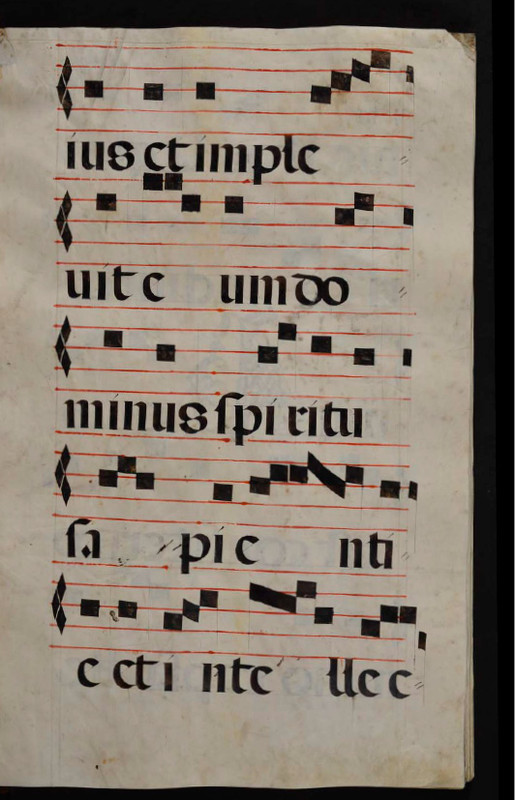 ius et imple
uit e um do
minus ſpi ritu
ſa pi e nti
e et i nte lle c